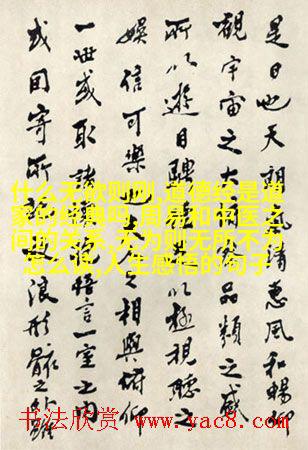 是日也天朗氣清惠風和暢仰
觀宇宙之大品類之盛
所以遊目騁以極視聽之
娛信可樂之相與俯仰
一世或取諸悟言一室之內
或因寄所浪形骸之外雖
什么无欲则刚,道德经是道
家的经典吗,周易和中医之
间的关系,无为则无所不为
怎么读,人生感悟的句子
书法欣赏 www.yac8.com